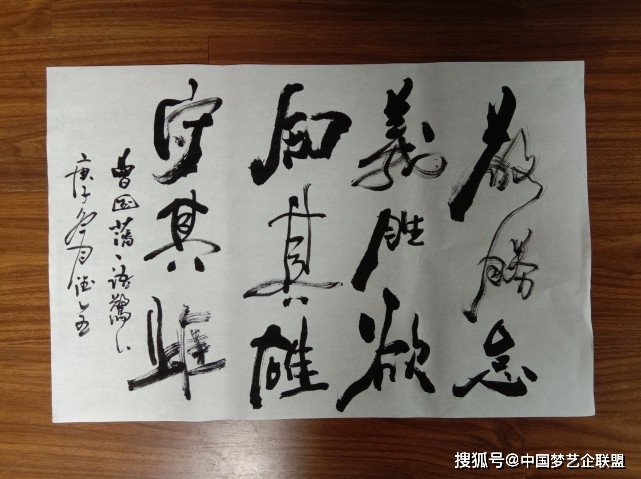 敬勝怠
義胜欲
知其雄
守其雌
曾国藩
庚子冬月
搜狐号@中国梦艺企联盟